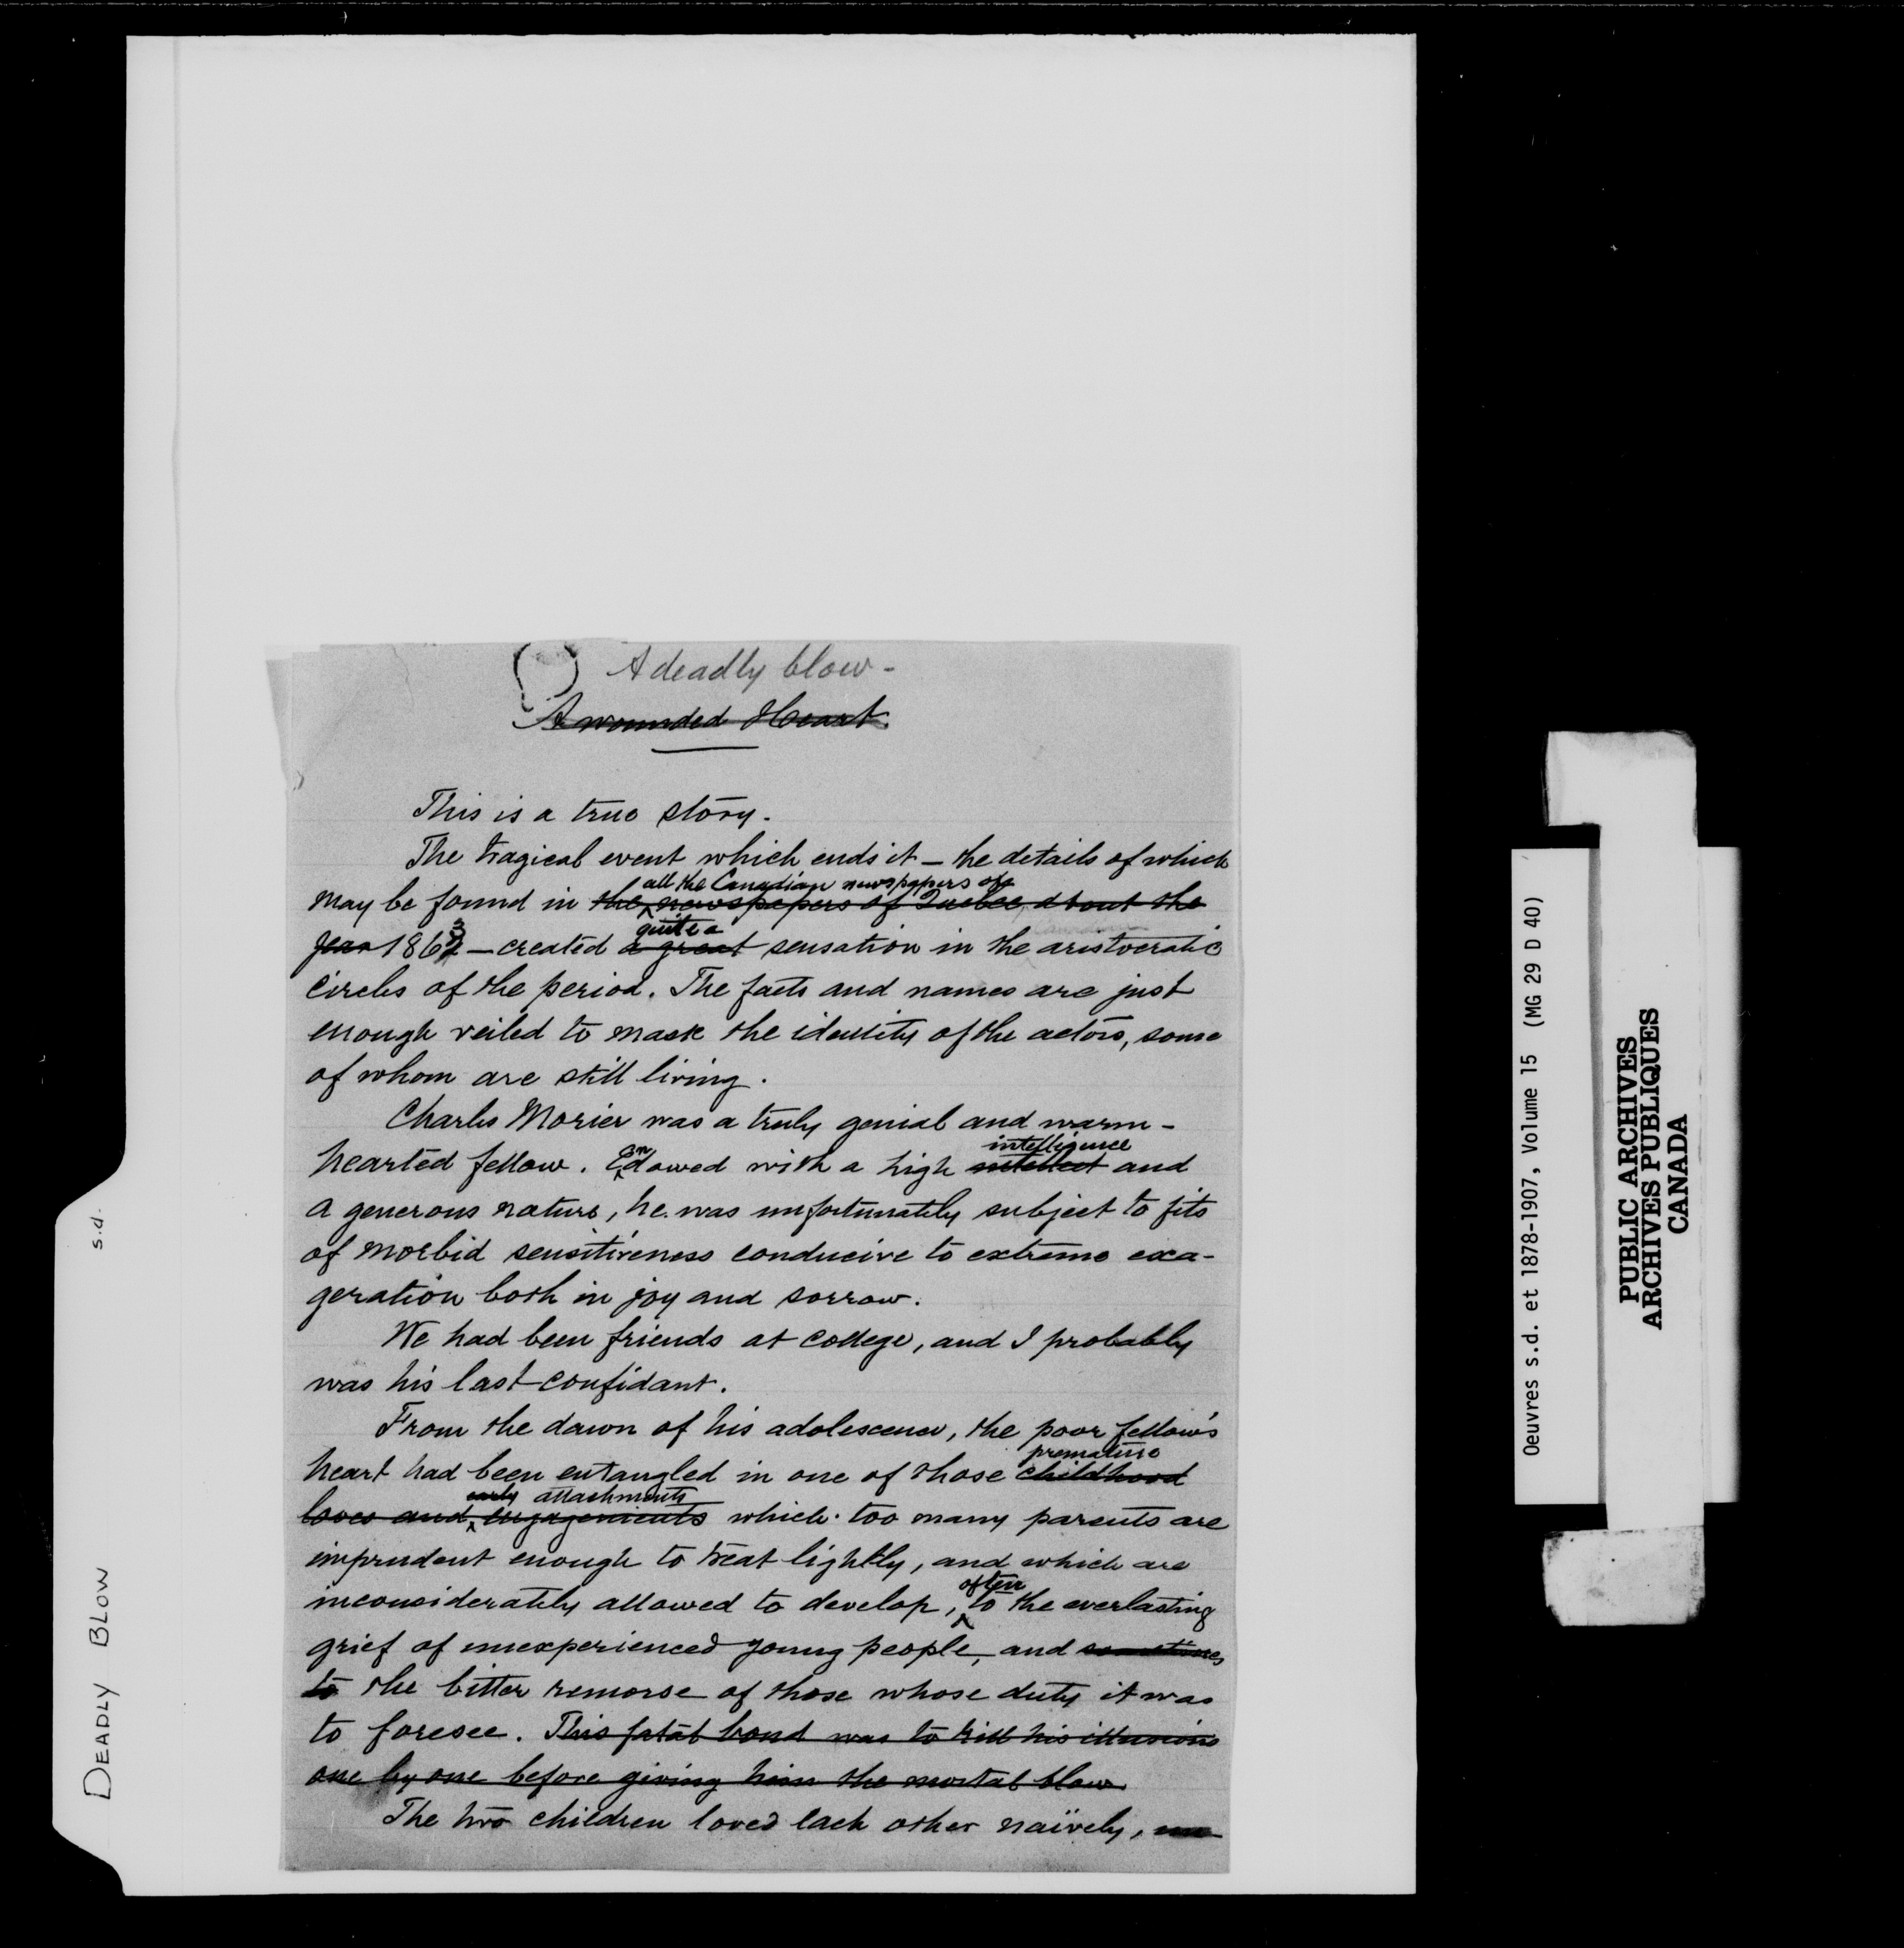 A deadly blow -
A wounded Heart
This is a true story.
The tragical event which ends it — the details of which
all the Canadian newspapers of
may be found in the newspapers of Quebec, about the
quite a
year 1863 — created a great sensation in the aristocratic
circles of the period. The facts and names are just
enough veiled to mask the identity of the actors, some
of whom are still living.
Charles Morier was a truly genial and warm-
intelligence
hearted fellow. Endowed with a high intellect and
a generous nature, he was unfortunately subject to fits
of morbid sensitiveness conducive to extreme exa-
geration both in joy and sorrow.
We had been friends at college, and I probably
was his last confidant.
From the dawn of his adolescence, the poor fellow's
premature
heart had been entangled in one of those childhood
early attachments
loves and engagements which too many parents are
imprudent enough to treat lightly, and which are
often
inconsiderately allowed to develop, to the everlasting
grief of unexperienced young people, and sometimes
to the bitter remorse of those whose duty it was
to foresee. This fatal bond was to kill his illusions
one by one before giving him the mortal blow
The two children loved each other naïvely,
DEADLY BLOW s.d.
Oeuvres s.d. et 1878-1907, Volume 15 (MG 29 D 40)
PUBLIC ARCHIVES
ARCHIVES PUBLIQUES
CANADA